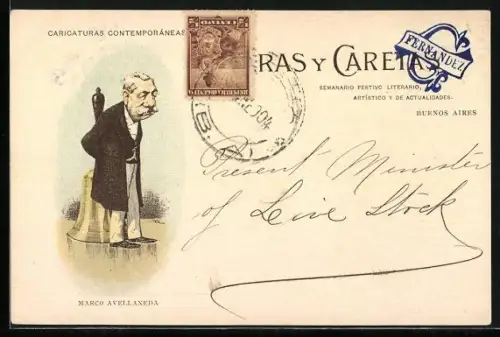 CARICATURAS CONTEMPORÁNEAS
RAS Y CARETAS
FERNANDEZ
SEMANARIO FESTIVO LITERARIO,
ARTÍSTICO Y DE ACTUALIDADES.
BUENOS AIRES
Present Minister
of Live Stock
MARCO AVELLANEDA